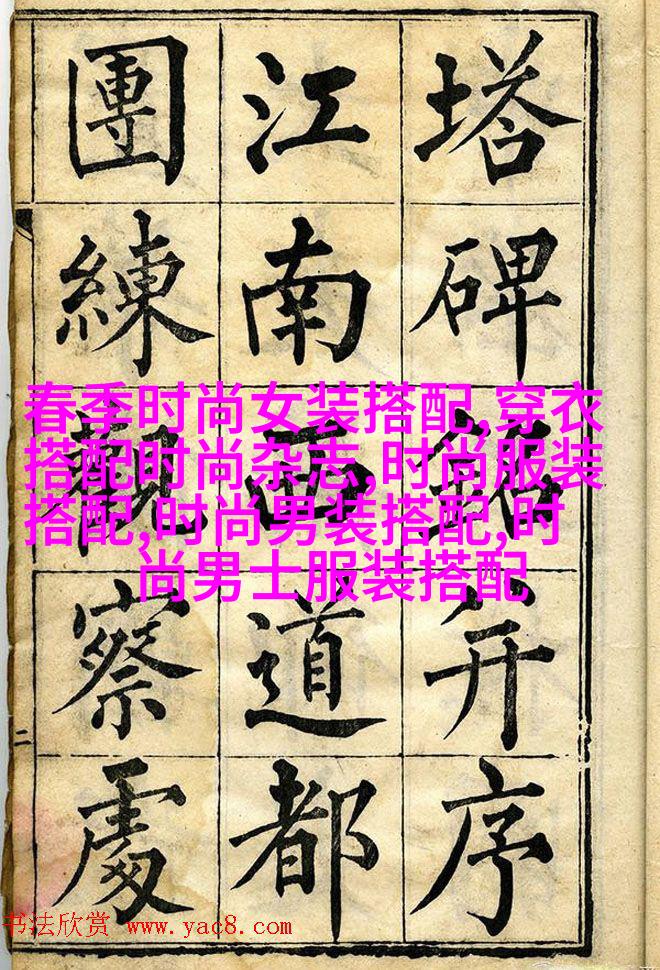 塔碑銘并序
江南西道都
團練觀察處
二
春季时尚女装搭配,穿衣
搭配时尚杂志,时尚服装
搭配,时尚男装搭配,时
尚男士服装搭配
书法欣赏 www.yac8.com